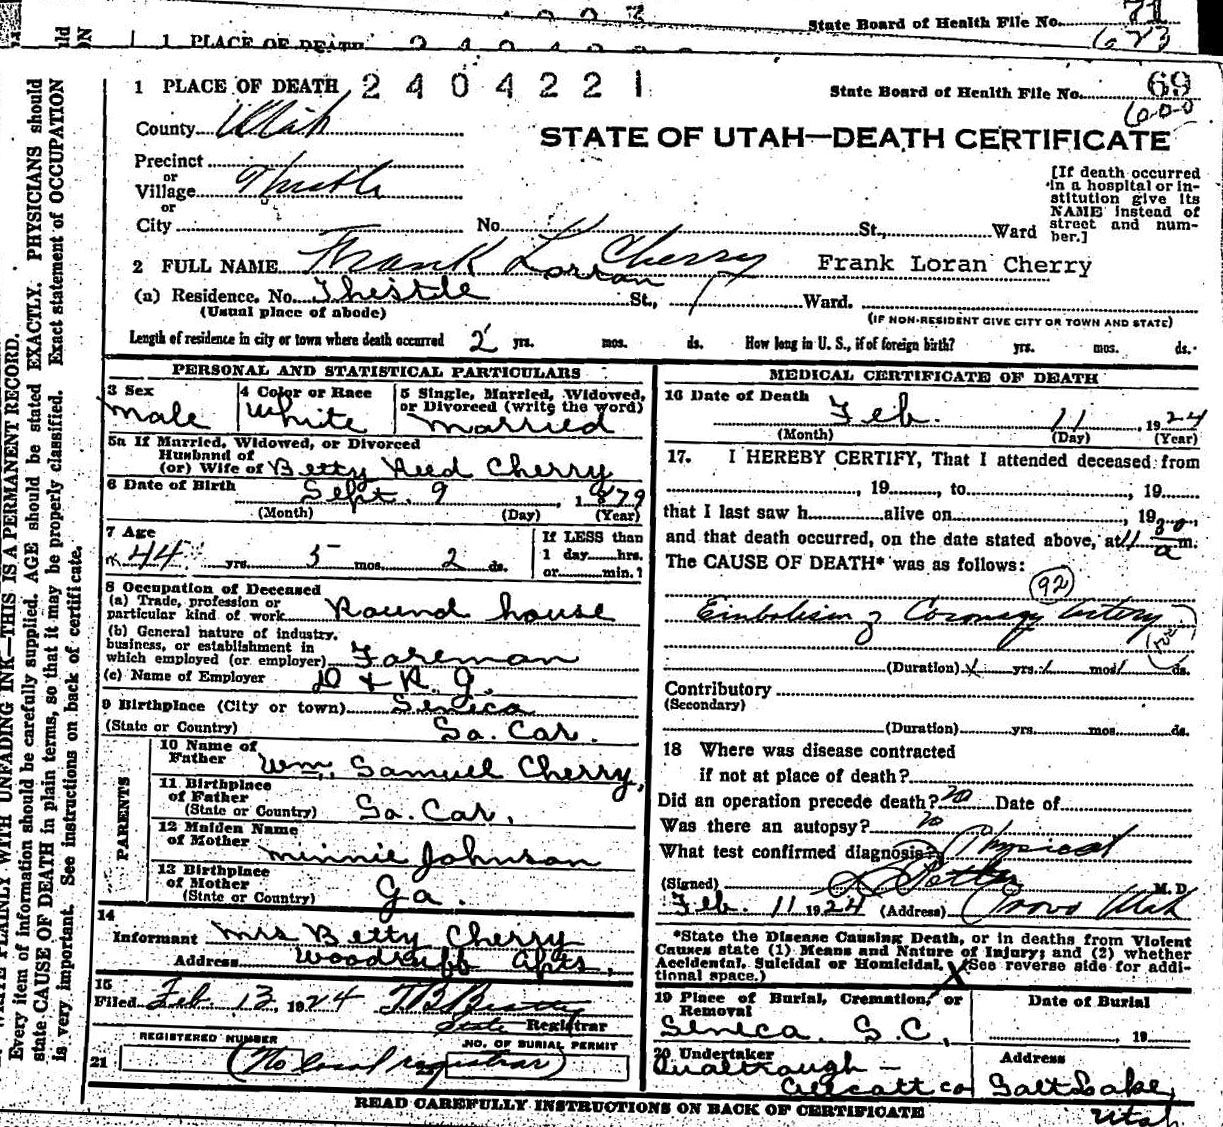 State Board of Health File No. 71
623
1 PLACE OF DEATH
1 PLACE OF DEATH 2404221
State Board of Health File No. 69
600
County Utah
STATE OF UTAH—DEATH CERTIFICATE
Precinct
or
Village Thistle
or
City No. St., Ward
[If death occurred
in a hospital or in-
stitution give its
NAME instead of
street and num-
ber.]
2 FULL NAME Frank Lorran Cherry Frank Loran Cherry
(a) Residence. No. Thistle St., Ward.
(Usual place of abode) (IF NON-RESIDENT GIVE CITY OR TOWN AND STATE)
Length of residence in city or town where death occurred 2 yrs. mos. ds. How long in U. S., if of foreign birth? yrs. mos. ds.
PERSONAL AND STATISTICAL PARTICULARS
3 Sex
male
4 Color or Race
White
5 Single, Married, Widowed,
or Divorced (write the word)
married
5a If Married, Widowed, or Divorced
Husband of
(or) Wife of Betty Reed Cherry
6 Date of Birth
Sept. 9, 1879
(Month) (Day) (Year)
7 Age
44 yrs. 5 mos. 2 ds.
If LESS than
1 day hrs.
or min.?
8 Occupation of Deceased
(a) Trade, profession or
particular kind of work Round house
(b) General nature of industry,
business, or establishment in
which employed (or employer) Foreman
(c) Name of Employer D & R. G.
9 Birthplace (City or town) Seneca
(State or Country) So. Car.
PARENTS
10 Name of
Father Wm. Samuel Cherry,
11 Birthplace
of Father
(State or Country) So. Car.
12 Maiden Name
of Mother Minnie Johnson
13 Birthplace
of Mother
(State or Country) Ga.
14
Informant Mrs Betty Cherry
Address Woodruff Apts,
15
Filed Feb. 13 1924
State Registrar
REGISTERED NUMBER NO. OF BURIAL PERMIT
21 (No local registrar)
MEDICAL CERTIFICATE OF DEATH
16 Date of Death Feb. 11 1924
(Month) (Day) (Year)
17. I HEREBY CERTIFY, That I attended deceased from
, 19 , to , 19
that I last saw h alive on , 19
and that death occurred, on the date stated above, at 11 30 a m.
The CAUSE OF DEATH* was as follows:
92
Embolism of Coronary Artery
(Duration) yrs. mos. ds.
Contributory
(Secondary)
(Duration) yrs. mos. ds.
18 Where was disease contracted
if not at place of death?
Did an operation precede death? no Date of
Was there an autopsy? no
What test confirmed diagnosis? Physical
(Signed) M.D.
Feb. 11 1924 (Address) Provo Utah
*State the Disease Causing Death, or in deaths from Violent
Causes state (1) Means and Nature of Injury; and (2) whether
Accidental, Suicidal or Homicidal. (See reverse side for addi-
tional space.)
19 Place of Burial, Cremation, or
Removal
Seneca S.C.,
Date of Burial
19
20 Undertaker
Address
Salt Lake,
Utah
READ CAREFULLY INSTRUCTIONS ON BACK OF CERTIFICATE
WRITE PLAINLY WITH UNFADING INK—THIS IS A PERMANENT RECORD.
Every item of information should be carefully supplied. AGE should be stated EXACTLY. PHYSICIANS should
state CAUSE OF DEATH in plain terms, so that it may be properly classified. Exact statement of OCCUPATION
is very important. See instructions on back of certificate.